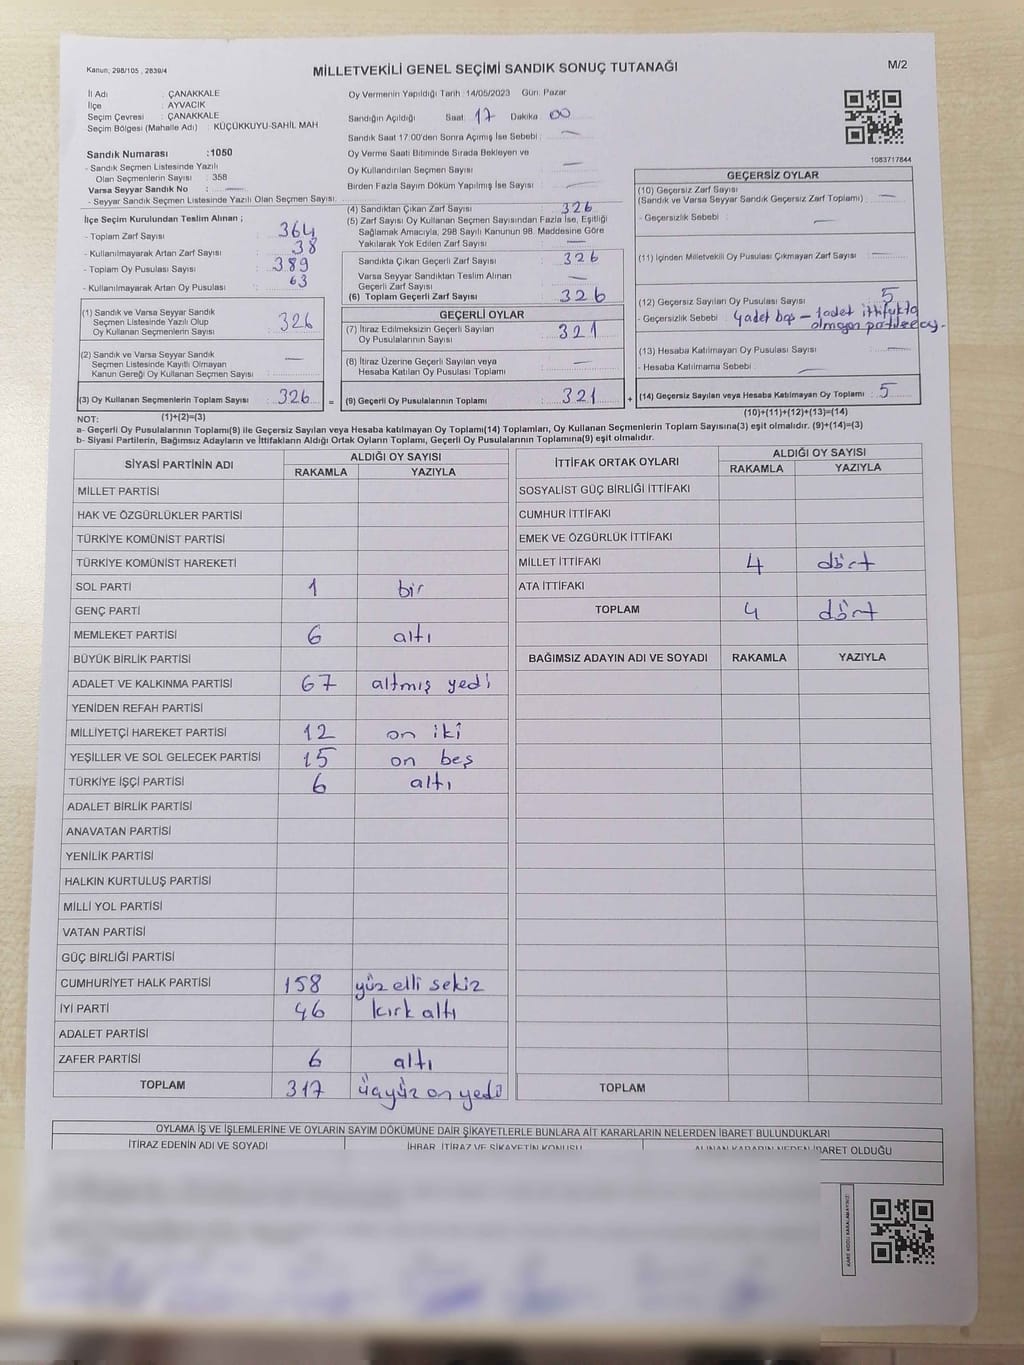 Kanun, 298/105 , 2839/4
MİLLETVEKİLİ GENEL SEÇİMİ SANDIK SONUÇ TUTANAĞI
M/2
İl Adı : ÇANAKKALE
İlçe : AYVACIK
Seçim Çevresi : ÇANAKKALE
Seçim Bölgesi (Mahalle Adı) : KÜÇÜKKUYU-SAHİL MAH
Sandık Numarası :1050
- Sandık Seçmen Listesinde Yazılı
Olan Seçmenlerin Sayısı : 358
Varsa Seyyar Sandık No :
- Seyyar Sandık Seçmen Listesinde Yazılı Olan Seçmen Sayısı:
İlçe Seçim Kurulundan Teslim Alınan ;
- Toplam Zarf Sayısı : 364
- Kullanılmayarak Artan Zarf Sayısı : 38
- Toplam Oy Pusulası Sayısı : 389
- Kullanılmayarak Artan Oy Pusulası : 63
(1) Sandık ve Varsa Seyyar Sandık
Seçmen Listesinde Yazılı Olup
Oy Kullanan Seçmenlerin Sayısı : 326
(2) Sandık ve Varsa Seyyar Sandık
Seçmen Listesinde Kayıtlı Olmayan
Kanun Gereği Oy Kullanan Seçmen Sayısı :
(3) Oy Kullanan Seçmenlerin Toplam Sayısı : 326 =
Oy Vermenin Yapıldığı Tarih :14/05/2023 Gün: Pazar
Sandığın Açıldığı Saat: 17 Dakika 00
Sandık Saat 17:00'den Sonra Açılmış İse Sebebi :
Oy Verme Saati Bitiminde Sırada Bekleyen ve
Oy Kullandırılan Seçmen Sayısı :
Birden Fazla Sayım Döküm Yapılmış İse Sayısı :
(4) Sandıktan Çıkan Zarf Sayısı : 326
(5) Zarf Sayısı Oy Kullanan Seçmen Sayısından Fazla İse, Eşitliği
Sağlamak Amacıyla, 298 Sayılı Kanunun 98. Maddesine Göre
Yakılarak Yok Edilen Zarf Sayısı :
Sandıkta Çıkan Geçerli Zarf Sayısı : 326
Varsa Seyyar Sandıktan Teslim Alınan
Geçerli Zarf Sayısı :
(6) Toplam Geçerli Zarf Sayısı : 326
GEÇERLİ OYLAR
(7) İtiraz Edilmeksizin Geçerli Sayılan
Oy Pusulalarının Sayısı : 321
(8) İtiraz Üzerine Geçerli Sayılan veya
Hesaba Katılan Oy Pusulası Toplamı :
(9) Geçerli Oy Pusulalarının Toplamı : 321 +
1083717844
GEÇERSİZ OYLAR
(10) Geçersiz Zarf Sayısı
(Sandık ve Varsa Seyyar Sandık Geçersiz Zarf Toplamı) :
- Geçersizlik Sebebi :
(11) İçinden Milletvekili Oy Pusulası Çıkmayan Zarf Sayısı :
(12) Geçersiz Sayılan Oy Pusulası Sayısı : 5
- Geçersizlik Sebebi : 4 adet boş - 1 adet ittifakta
olmayan partilere oy.
(13) Hesaba Katılmayan Oy Pusulası Sayısı :
- Hesaba Katılmama Sebebi :
(14) Geçersiz Sayılan veya Hesaba Katılmayan Oy Toplamı : 5
NOT: (1)+(2)=(3) (10)+(11)+(12)+(13)=(14)
a- Geçerli Oy Pusulalarının Toplamı(9) ile Geçersiz Sayılan veya Hesaba katılmayan Oy Toplamı(14) Toplamları, Oy Kullanan Seçmenlerin Toplam Sayısına(3) eşit olmalıdır. (9)+(14)=(3)
b- Siyasi Partilerin, Bağımsız Adayların ve İttifakların Aldığı Ortak Oyların Toplamı, Geçerli Oy Pusulalarının Toplamına(9) eşit olmalıdır.
SİYASİ PARTİNİN ADI ALDIĞI OY SAYISI
RAKAMLA YAZIYLA
MİLLET PARTİSİ
HAK VE ÖZGÜRLÜKLER PARTİSİ
TÜRKİYE KOMÜNİST PARTİSİ
TÜRKİYE KOMÜNİST HAREKETİ
SOL PARTİ 1 bir
GENÇ PARTİ
MEMLEKET PARTİSİ 6 altı
BÜYÜK BİRLİK PARTİSİ
ADALET VE KALKINMA PARTİSİ 67 altmış yedi
YENİDEN REFAH PARTİSİ
MİLLİYETÇİ HAREKET PARTİSİ 12 on iki
YEŞİLLER VE SOL GELECEK PARTİSİ 15 on beş
TÜRKİYE İŞÇİ PARTİSİ 6 altı
ADALET BİRLİK PARTİSİ
ANAVATAN PARTİSİ
YENİLİK PARTİSİ
HALKIN KURTULUŞ PARTİSİ
MİLLİ YOL PARTİSİ
VATAN PARTİSİ
GÜÇ BİRLİĞİ PARTİSİ
CUMHURİYET HALK PARTİSİ 158 yüz elli sekiz
İYİ PARTİ 46 kırk altı
ADALET PARTİSİ
ZAFER PARTİSİ 6 altı
TOPLAM 317 üçyüz on yedi
İTTİFAK ORTAK OYLARI ALDIĞI OY SAYISI
RAKAMLA YAZIYLA
SOSYALİST GÜÇ BİRLİĞİ İTTİFAKI
CUMHUR İTTİFAKI
EMEK VE ÖZGÜRLÜK İTTİFAKI
MİLLET İTTİFAKI 4 dört
ATA İTTİFAKI
TOPLAM 4 dört
BAĞIMSIZ ADAYIN ADI VE SOYADI RAKAMLA YAZIYLA
TOPLAM
OYLAMA İŞ VE İŞLEMLERİNE VE OYLARIN SAYIM DÖKÜMÜNE DAİR ŞİKAYETLERLE BUNLARA AİT KARARLARIN NELERDEN İBARET BULUNDUKLARI
İTİRAZ EDENİN ADI VE SOYADI İHBAR, İTİRAZ VE ŞİKAYETİN KONUSU ALINAN KARARIN NEDEN İBARET OLDUĞU
KARE KODU KARALAMAYINIZ!